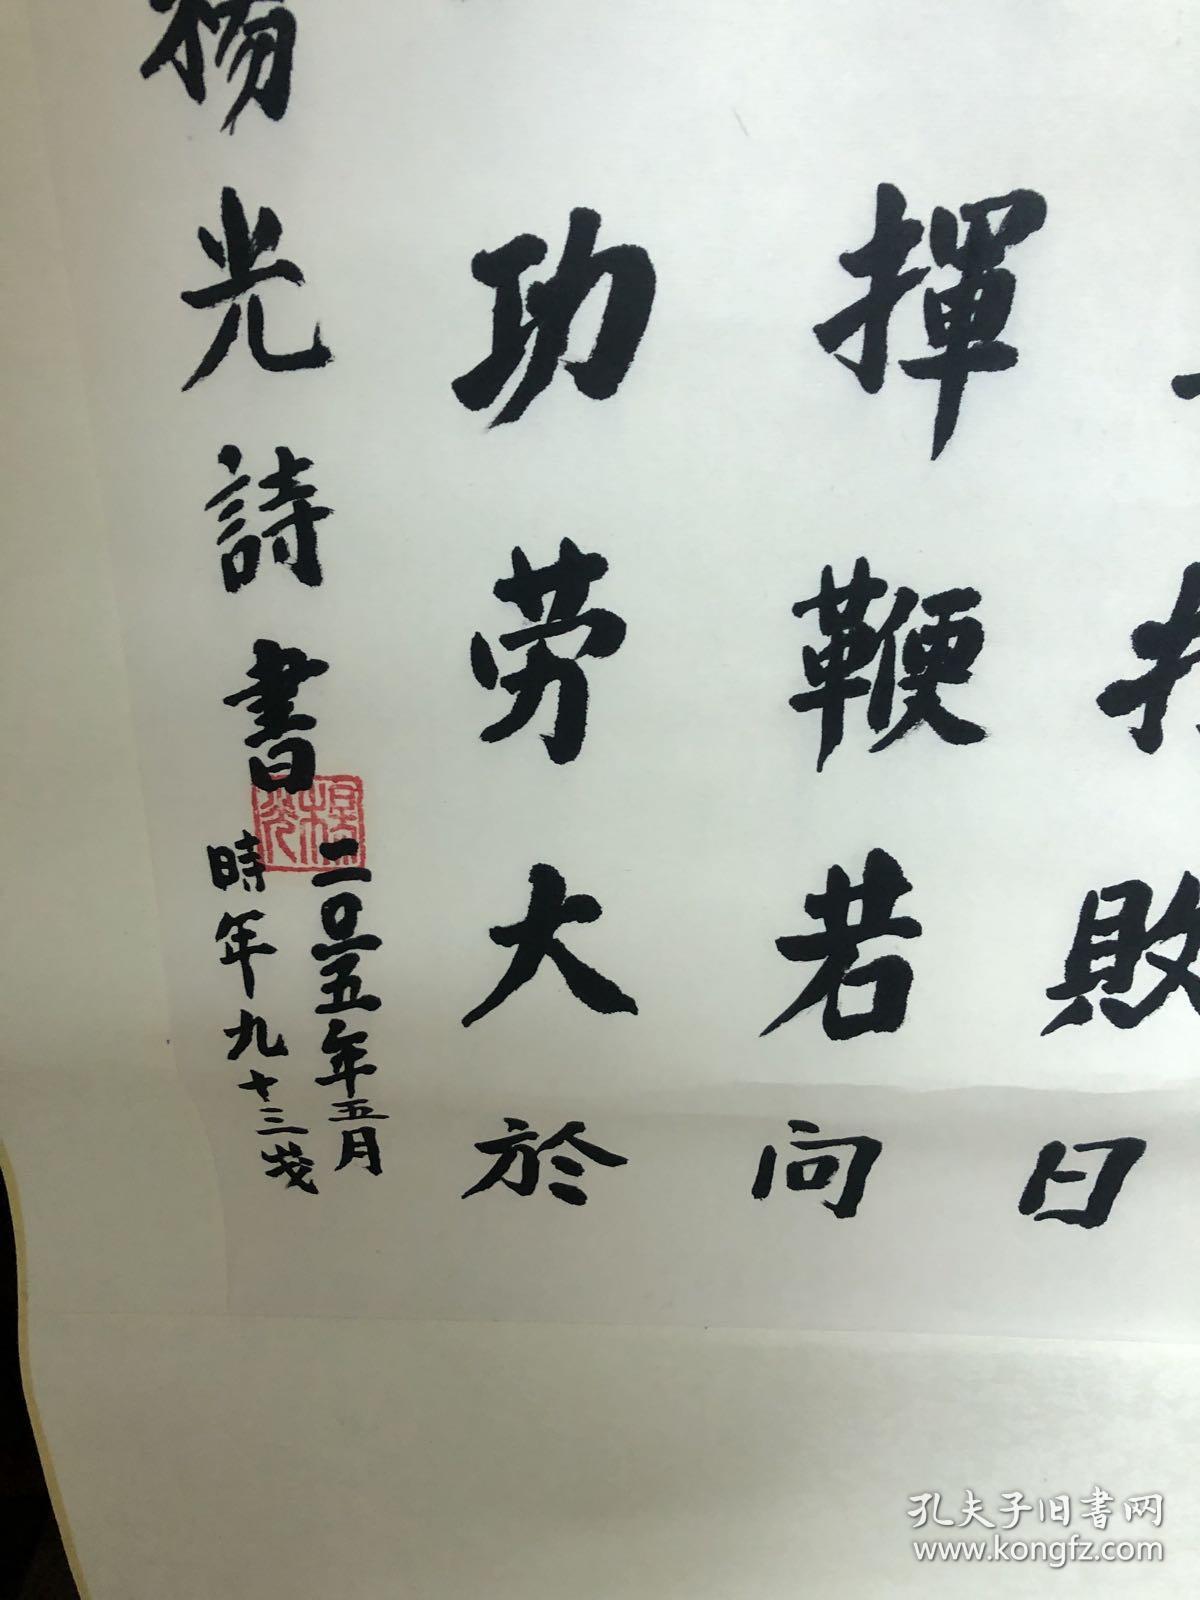 敗日
揮鞭若向
功劳大於
楊光詩書
二〇一五年五月
時年九十三岁
孔夫子旧書网
www.kongfz.com